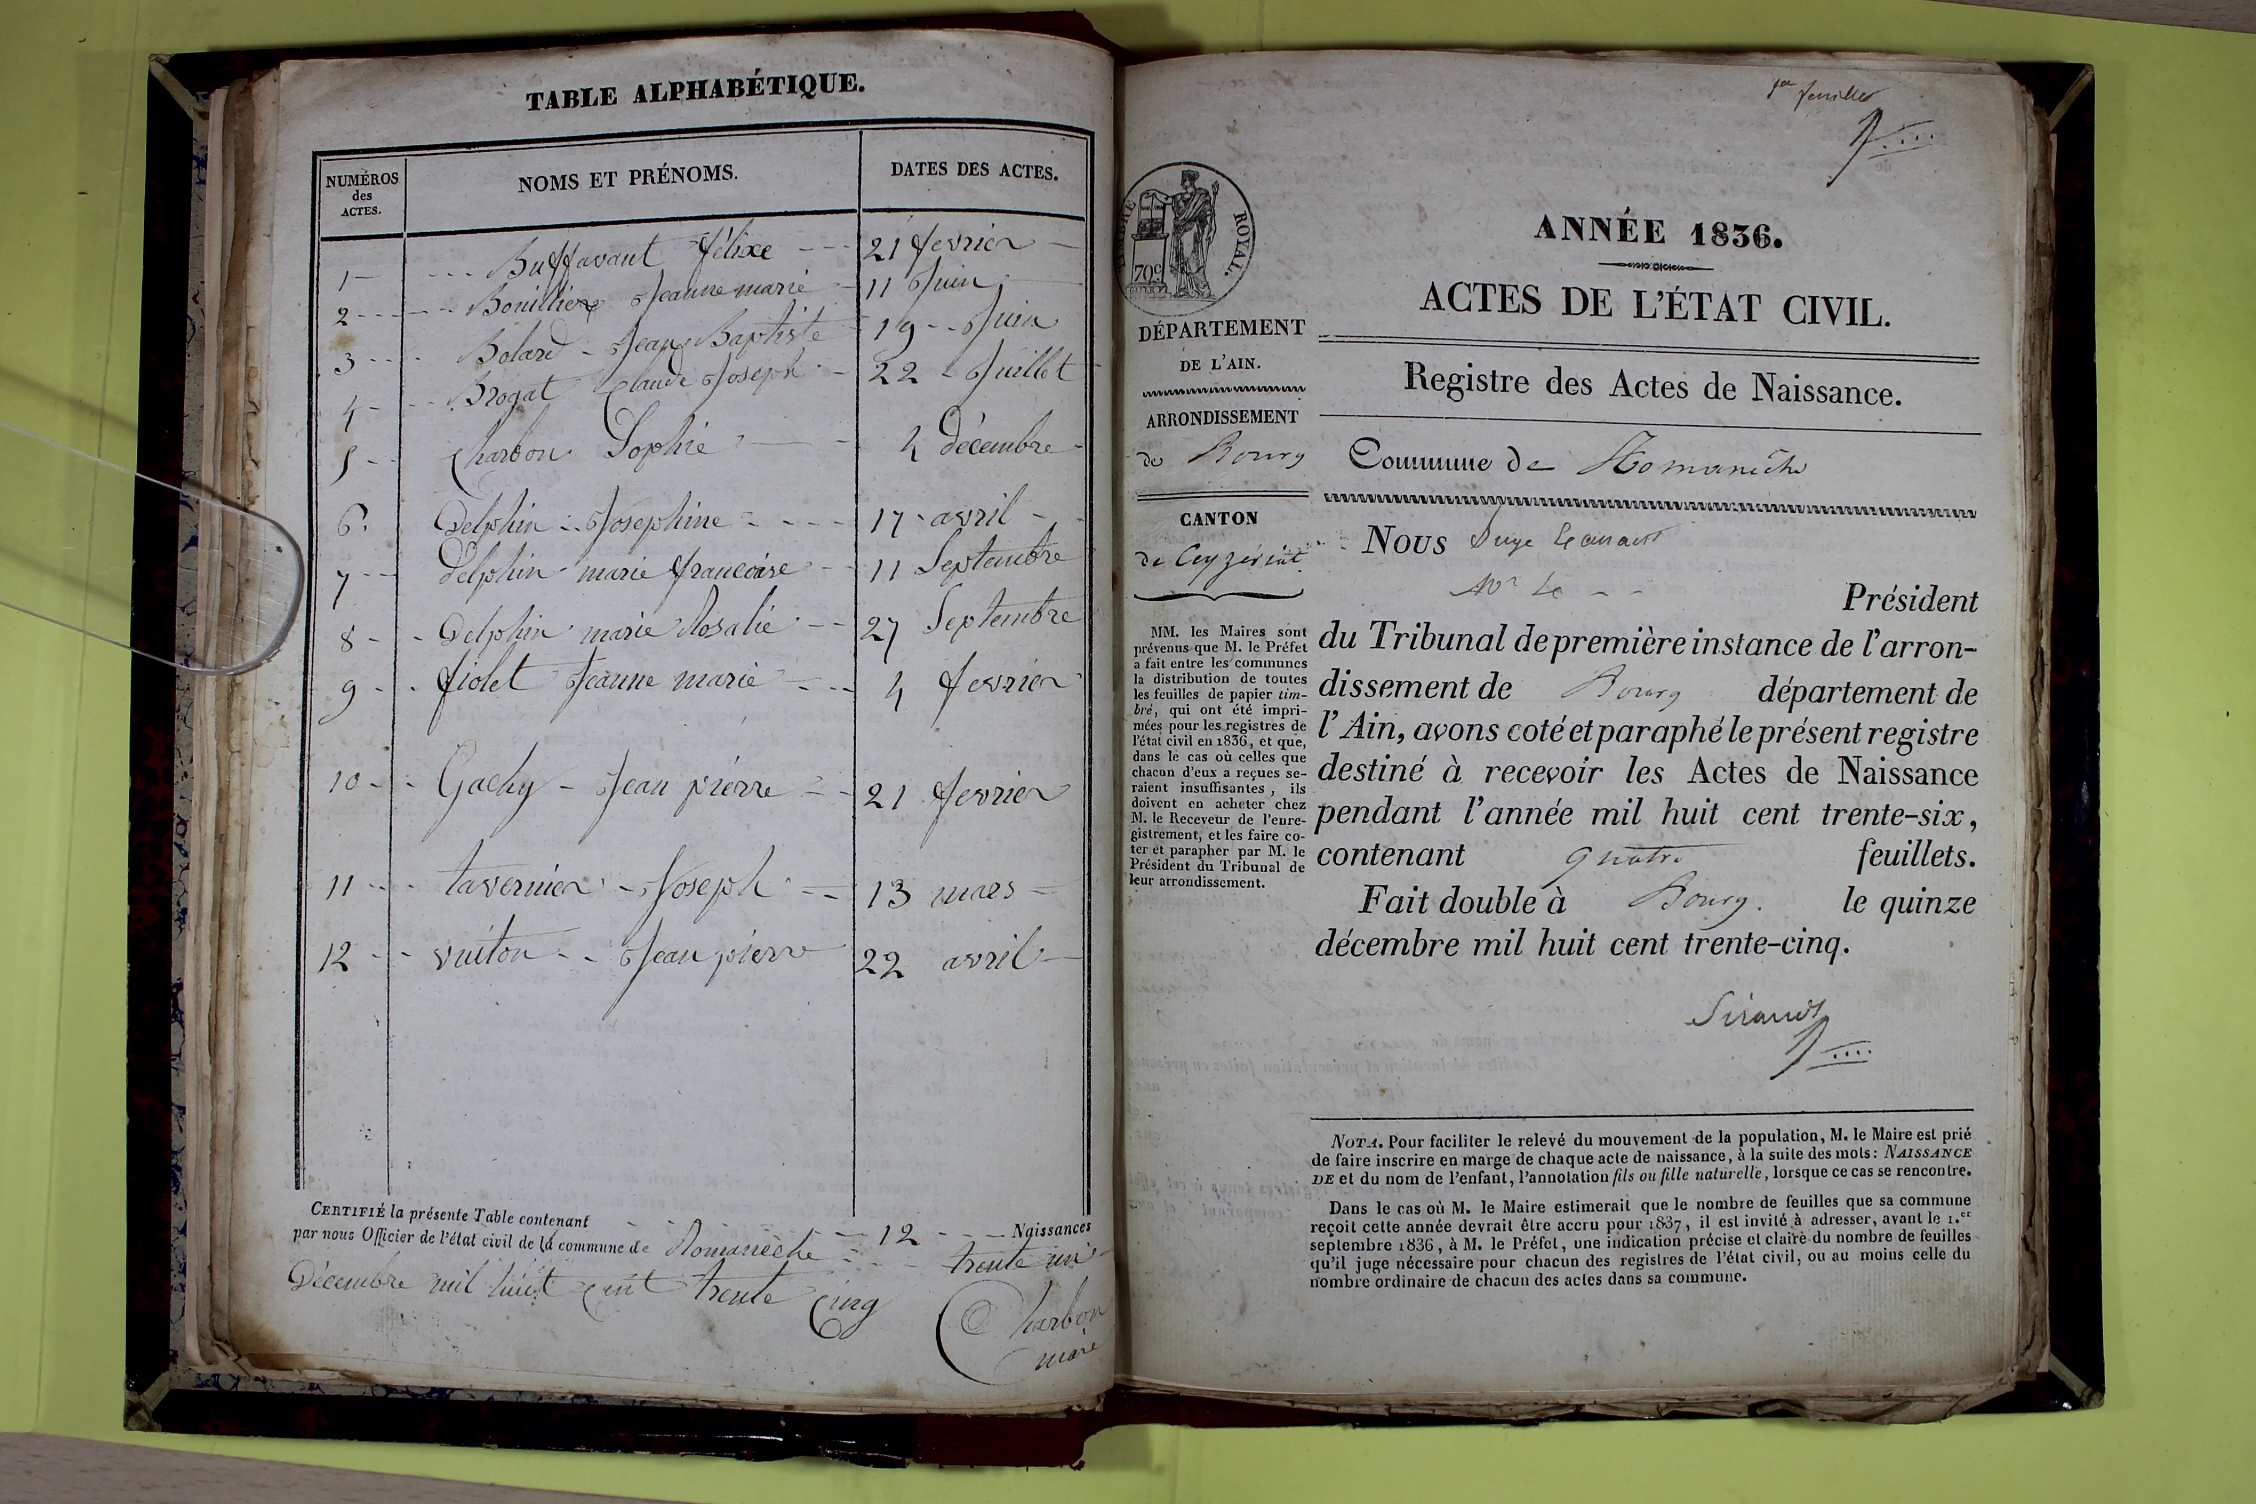 TABLE ALPHABÉTIQUE.
NUMÉROS des ACTES. NOMS ET PRÉNOMS. DATES DES ACTES.
1 Buffavant félixe 21 fevrier
2 Bouillier Jeanne marie 11 Juin
3 Bolard Jean Baptiste 19 Juin
4 Brogat Claude Joseph 22 Juillet
5 Charbon Sophie 4 décembre
6 Delphin Josephine 17 avril
7 Delphin marie francoise 11 Septembre
8 Delphin marie Rosalie 27 Septembre
9 fiolet Jeanne marie 4 fevrier
10 Gachy Jean pierre 21 fevrier
11 tavernier Joseph 13 mars
12 vuiton Jean pierre 22 avril
CERTIFIÉ la présente Table contenant 12 Naissances
par nous Officier de l'état civil de la commune de Romanèche trente un
Décembre mil huit cent trente Cinq
Charbon
mare
1er feuillet
TIMBRE ROYAL.
70c
ANNÉE 1836.
ACTES DE L'ÉTAT CIVIL.
DÉPARTEMENT
DE L'AIN.
ARRONDISSEMENT
de Bourg
CANTON
de Ceyzériat
MM. les Maires sont
prévenus que M. le Préfet
a fait entre les communes
la distribution de toutes
les feuilles de papier tim-
bré, qui ont été impri-
mées pour les registres de
l'état civil en 1836, et que,
dans le cas où celles que
chacun d'eux a reçues se-
raient insuffisantes, ils
doivent en acheter chez
M. le Receveur de l'enre-
gistrement, et les faire co-
ter et parapher par M. le
Président du Tribunal de
leur arrondissement.
Registre des Actes de Naissance.
Commune de Romanèche
Nous Juge
Mr le Président
du Tribunal de première instance de l'arron-
dissement de Bourg département de
l'Ain, avons coté et paraphé le présent registre
destiné à recevoir les Actes de Naissance
pendant l'année mil huit cent trente-six,
contenant quatre feuillets.
Fait double à Bourg. le quinze
décembre mil huit cent trente-cinq.
Sirand
NOTA. Pour faciliter le relevé du mouvement de la population, M. le Maire est prié
de faire inscrire en marge de chaque acte de naissance, à la suite des mots: NAISSANCE
DE et du nom de l'enfant, l'annotation fils ou fille naturelle, lorsque ce cas se rencontre.
Dans le cas où M. le Maire estimerait que le nombre de feuilles que sa commune
reçoit cette année devrait être accru pour 1837, il est invité à adresser, avant le 1.er
septembre 1836, à M. le Préfet, une indication précise et claire du nombre de feuilles
qu'il juge nécessaire pour chacun des registres de l'état civil, ou au moins celle du
nombre ordinaire de chacun des actes dans sa commune.